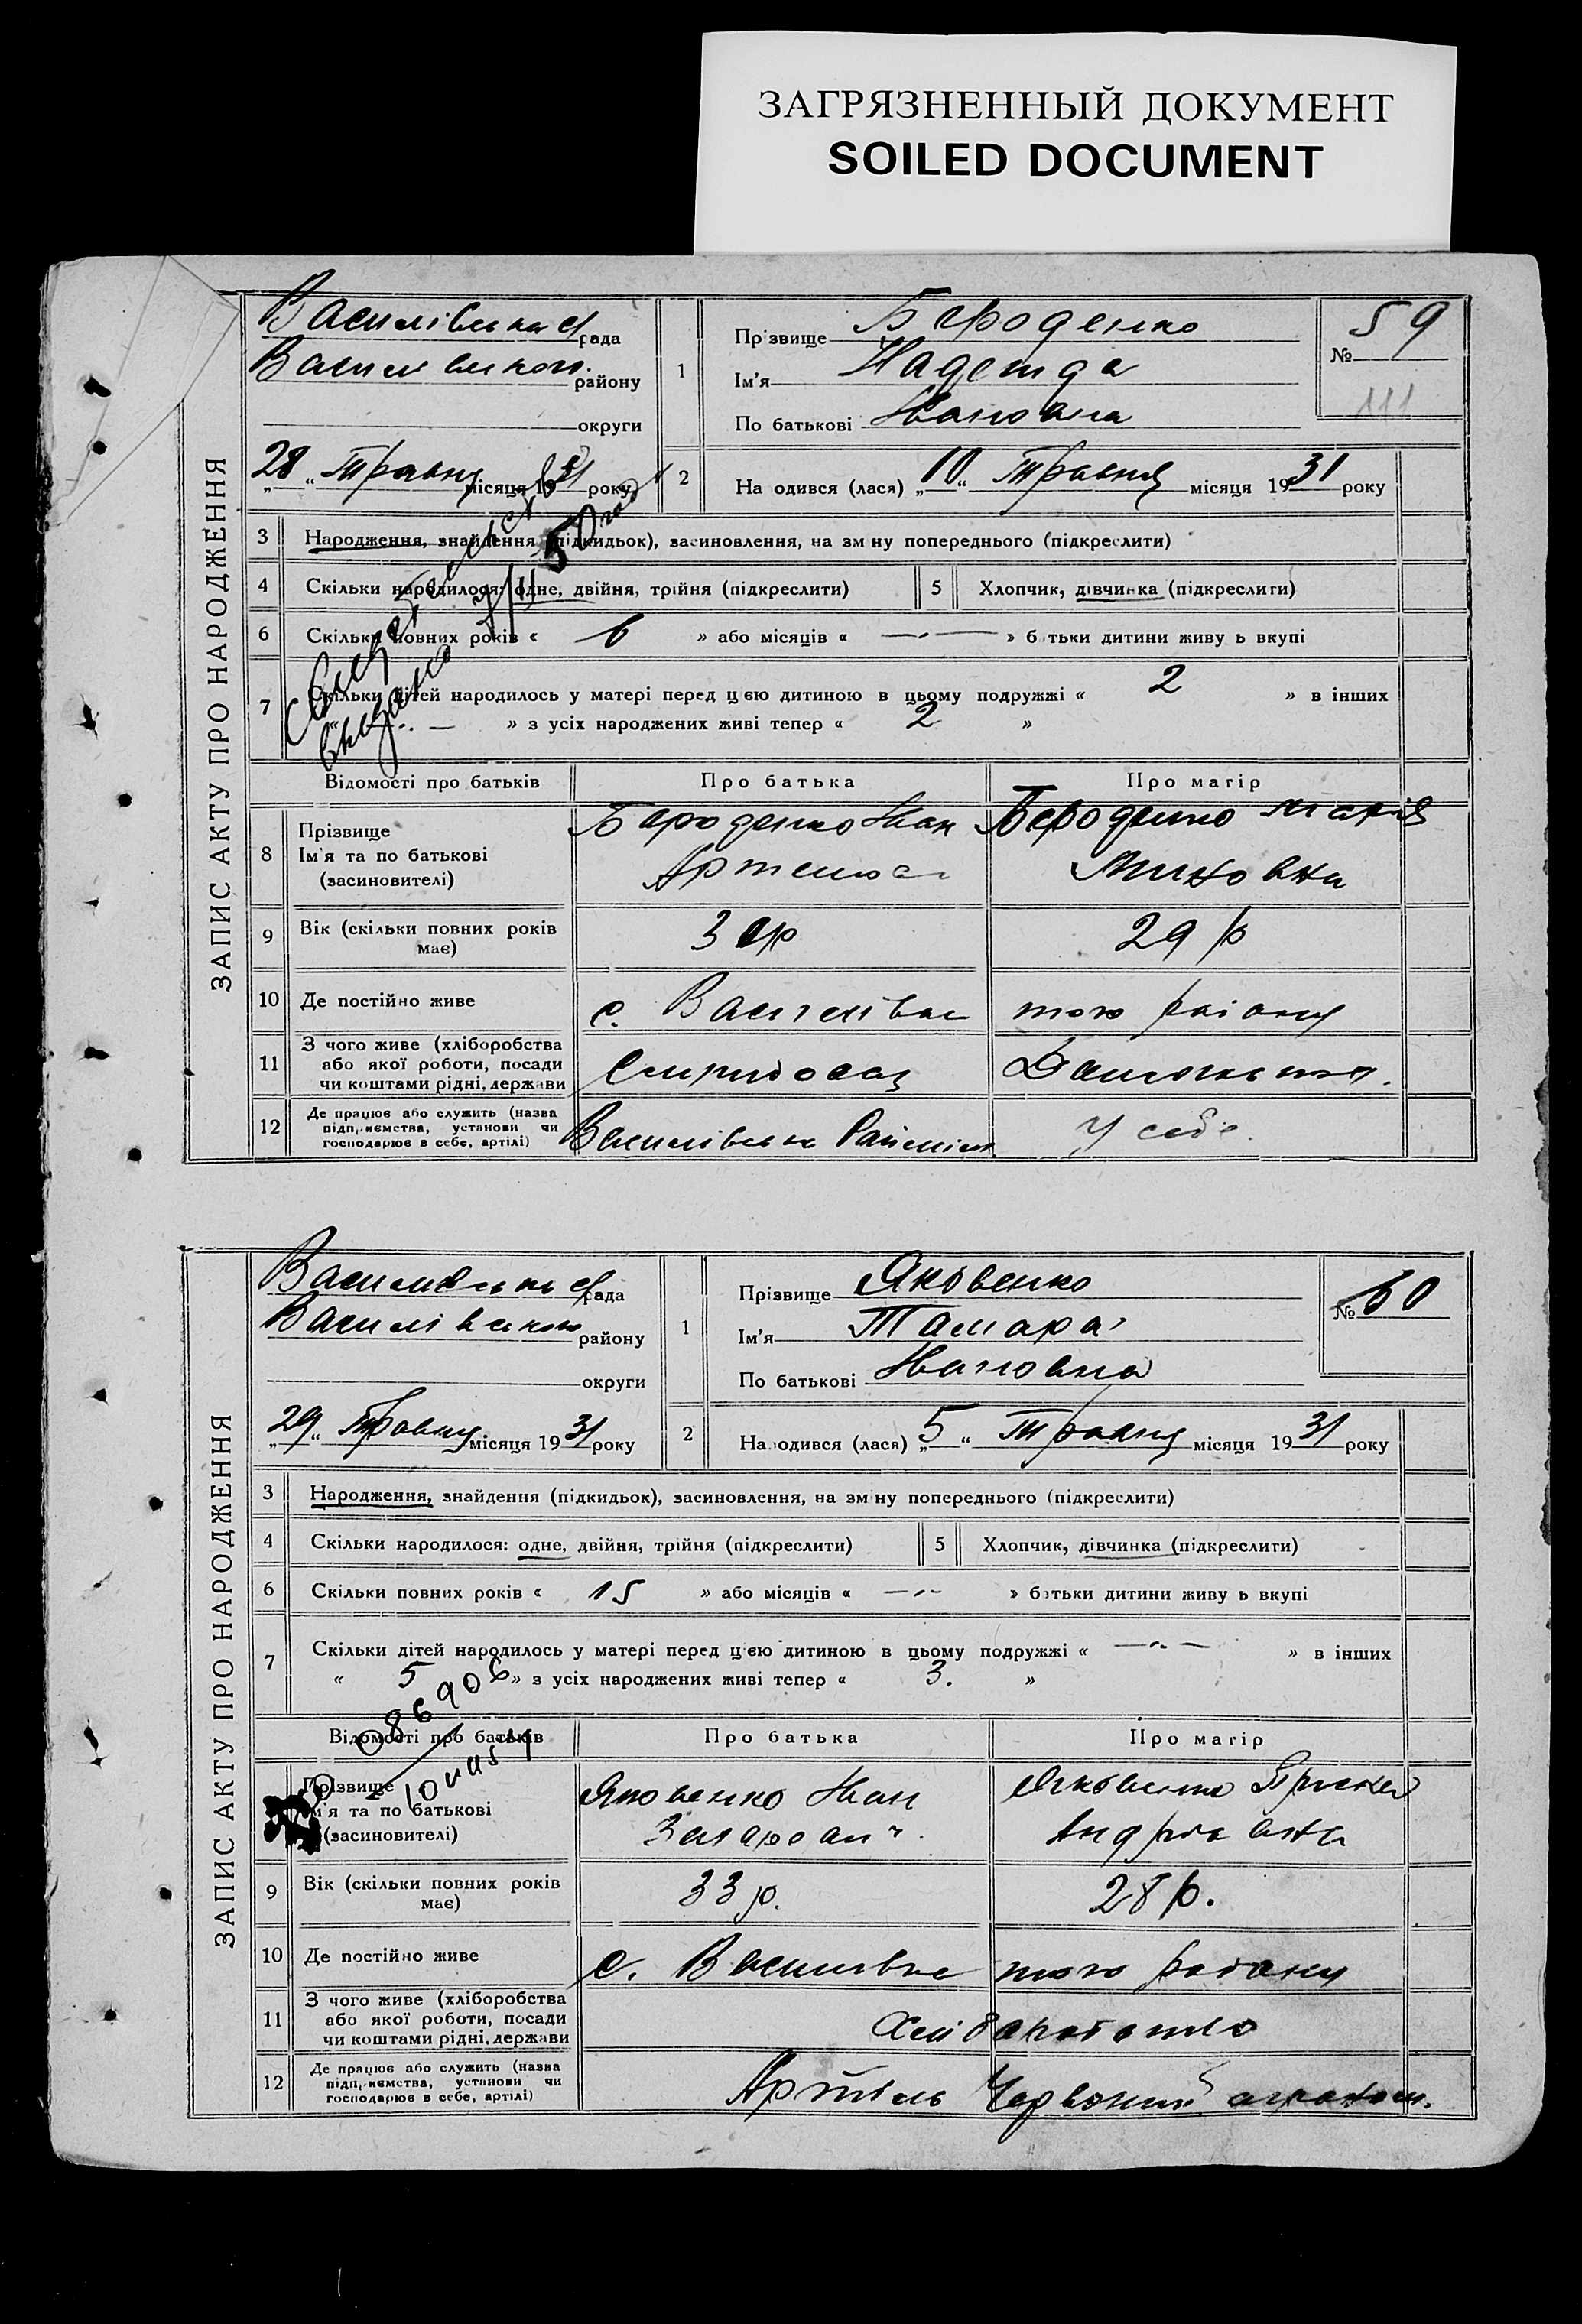 ЗАГРЯЗНЕННЫЙ ДОКУМЕНТ
SOILED DOCUMENT
ЗАПИС АКТУ ПРО НАРОДЖЕННЯ
Василівська рада
Василівського району
округи
28 Травня місяця 1931 року
1
Прізвище Бероденко
Ім'я Надежда
По батькові Івановна
№ 59
111
2
Народився (лася) „10“ Травня місяця 1931 року
3 Народження, знайдення (підкидьок), засиновлення, на зміну попереднього (підкреслити)
4 Скільки народилося: одне, двійня, трійня (підкреслити)
5 Хлопчик, дівчинка (підкреслити)
6 Скільки повних років « 6 » або місяців « —„— » батьки дитини живуть вкупі
7 Скільки дітей народилось у матері перед цією дитиною в цьому подружжі « 2 » в інших
« — » з усіх народжених живі тепер « 2 »
Відомості про батьків
Про батька
Про матір
8 Прізвище
Ім'я та по батькові
(засиновителі)
Бероденко Іван
Бероденко Марія
Миновна
9 Вік (скільки повних років
має)
29 р
10 Де постійно живе
с. Василівка
того району
11 З чого живе (хліборобства
або якої роботи, посади
чи коштами рідні, держави
12 Де працює або служить (назва
підприємства, установи чи
господарює в себе, артілі)
Василівська
У себе
ЗАПИС АКТУ ПРО НАРОДЖЕННЯ
Василівська рада
Василівського району
округи
„29“ Травня місяця 1931 року
1
Прізвище Яковенко
Ім'я Тамара
По батькові Івановна
№ 60
2
Народився (лася) „5“ Травня місяця 1931 року
3 Народження, знайдення (підкидьок), засиновлення, на зміну попереднього (підкреслити)
4 Скільки народилося: одне, двійня, трійня (підкреслити)
5 Хлопчик, дівчинка (підкреслити)
6 Скільки повних років « 15 » або місяців « —„— » батьки дитини живуть вкупі
7 Скільки дітей народилось у матері перед цією дитиною в цьому подружжі « —„— » в інших
« 5 » з усіх народжених живі тепер « 3. »
086906
Відомості про батьків
Про батька
Про матір
Прізвище
Ім'я та по батькові
(засиновителі)
Яковенко Іван
Захарович
Яковенко
9 Вік (скільки повних років
має)
33 р.
28 р.
10 Де постійно живе
с. Василівка
того району
11 З чого живе (хліборобства
або якої роботи, посади
чи коштами рідні, держави
Хліборобство
12 Де працює або служить (назва
підприємства, установи чи
господарює в себе, артілі)
Артіль Червоний